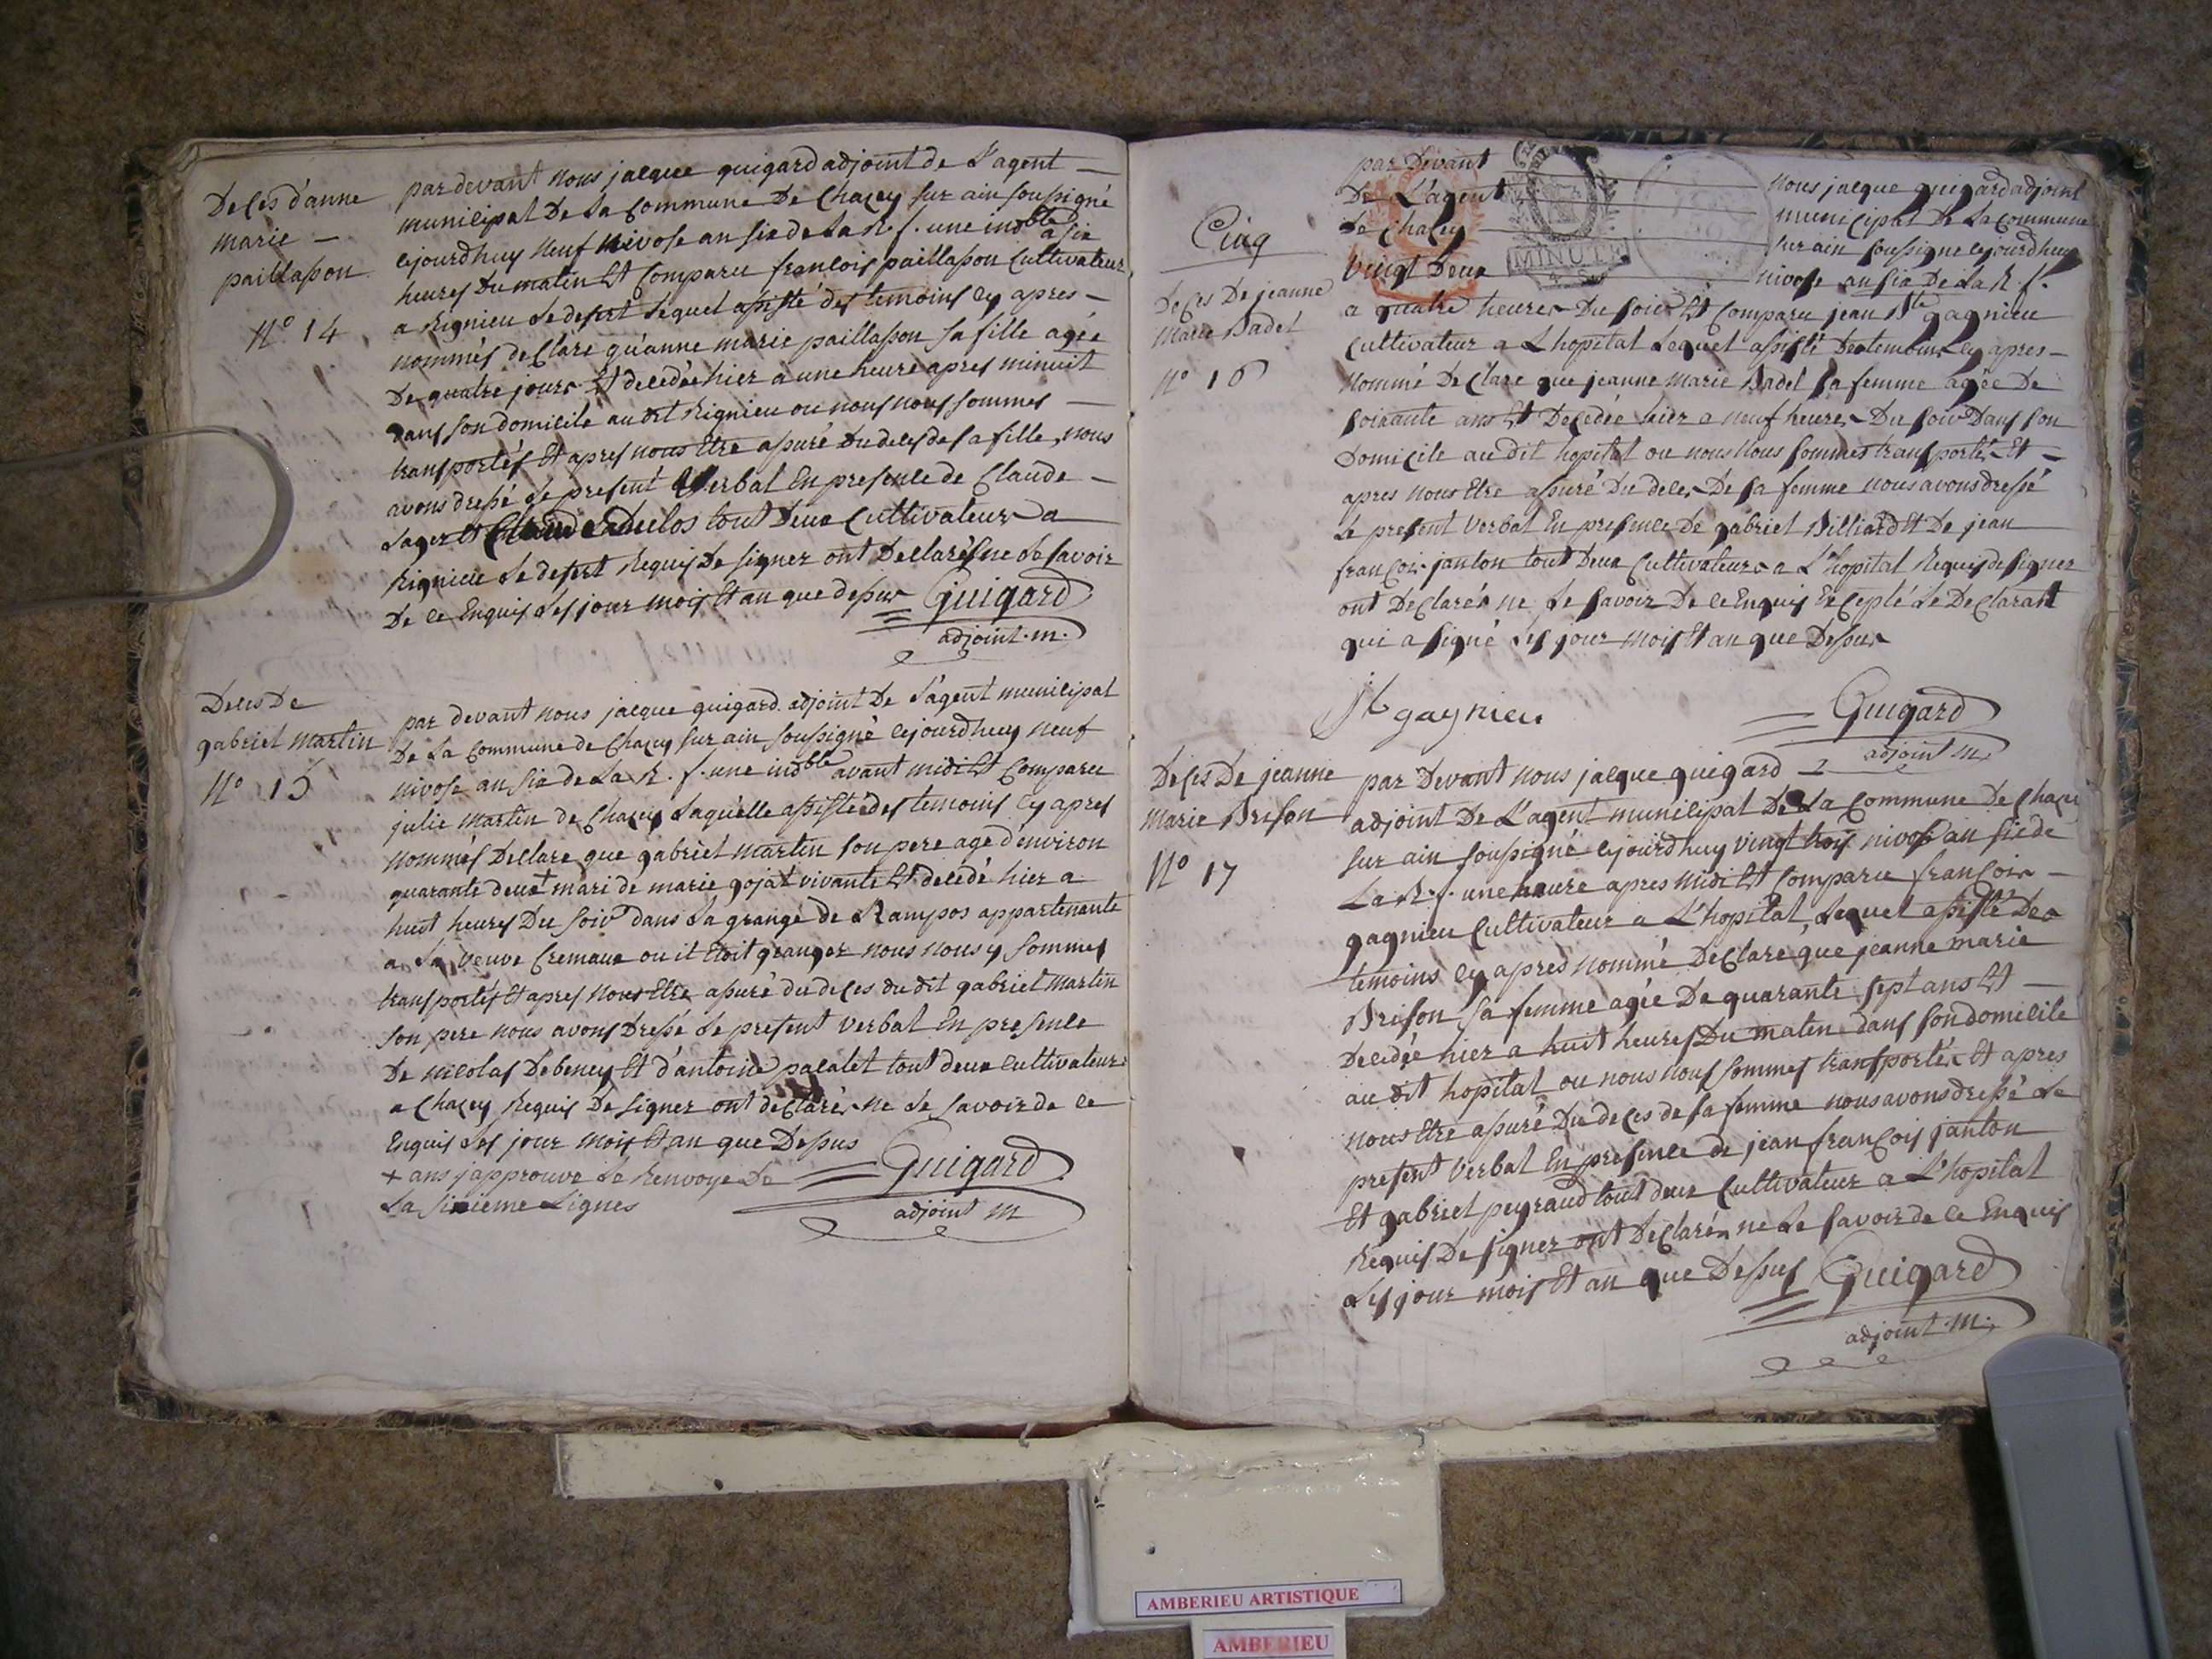 Deces d'anne
marie —
paillasson
N° 14
par devant nous jacque guigard adjoint de L'agent —
municipal De La Commune De Chazey sur ain soussigné
cejourdhuy neuf nivose an six de La R. f. une indble a six
heures Du matin Et Comparu francois paillasson Cultivateur
a Rignieu Le desert Lequel assisté des temoins cy apres —
nommés deClare qu'anne marie paillasson sa fille agée
De quatre jours Et decedée hier a une heure apres minuit
Dans son domicile au dit Rignieu ou nous nous sommes —
transportés Et apres nous Etre assuré Du deces de sa fille nous
avons dressé Le present Verbal En presence de Claude —
Lager Et Claude Duclos tout Deux Cultivateurs a
Rignieu Le desert Requis De signer ont Declarés ne Le savoir
De ce Enquis Les jour mois Et an que dessus Guigard
adjoint . m .
Deces De
gabriel martin
N° 15
par devant nous jacque guigard adjoint De L'agent municipal
De La Commune de Chazey sur ain soussigné cejourdhuy neuf
nivose an six de La R . f . une indble avant midi Et Comparu
julie martin de Chazey Laquelle assistée des temoins cy apres
nommés Declare que gabriel martin son pere agé d'environ
quarante deux + mari de marie gojat vivante Et decedé hier a
huit heures Du soir dans La grange de Rampos appartenante
a La Veuve Cremaux ou il Etoit granger nous nous y sommes
transportés Et apres nous Etre assuré du deces du dit gabriel martin
son pere nous avons Dressé Le present verbal En presence
De nicolas Debeney Et d'antoine palalet tout deux cultivateurs
a Chazey Requis De signer ont declarés ne Le savoir de ce
Enquis Les jour mois Et an que Dessus
+ ans j'approuve Le Renvoye De
La sixieme Lignes
Guigard
adjoint m
Cinq
par Devant nous jacque guigard adjoint
De L'agent municipal De La Commune
De Chazey sur ain soussigné cejourdhuy
Vingt Deux nivose an six De La R . f .
MINUTE
Deces De jeanne
Marie Badel
N° 16
a quatre heures Du soir Et Comparu jean Bte gagnieu
Cultivateur a L hopital Lequel assisté Des temoins cy apres —
nommé DeClare que jeanne marie Badel sa femme agée De
soixante ans Et Decedée hier a neuf heures Du soir Dans son
Domicile au dit hopital ou nous nous sommes transportés Et —
apres nous Etre assuré Du deces De sa femme nous avons dressé
Le present Verbal En presence De gabriel Billiard Et De jean
francois janton tout Deux Cultivateurs a L'hopital Requis de signer
ont DeClarés ne Le savoir De ce Enquis Excepté Le DeClarant
qui a signé Les jour mois Et an que Dessus
jb gagnieu
Guigard
adjoint m.
Deces De jeanne
Marie Brison
N° 17
par Devant nous jacque guigard
adjoint De L'agent municipal De La Commune De Chazey
sur ain soussigné cejourdhuy vingt trois nivose an six de
La R. f. une heure apres midi Et Comparu francois —
gagnieu Cultivateur a L'hopital Lequel assisté Des
temoins cy apres nommé DeClare que jeanne marie
Brison sa femme agée De quarante sept ans Et —
Decedée hier a huit heures Du matin dans son domicile
au dit hopital ou nous nous sommes transportés Et apres
nous Etre assuré Du deces de sa femme nous avons dressé Le
present Verbal En presence de jean francois janton
Et gabriel peyraud tout deux Cultivateur a L'hopital
Requis De signer ont DeClarés ne Le savoir de ce Enquis
Les jour mois Et an que Dessus Guigard
adjoint . m .
AMBERIEU ARTISTIQUE
AMBERIEU